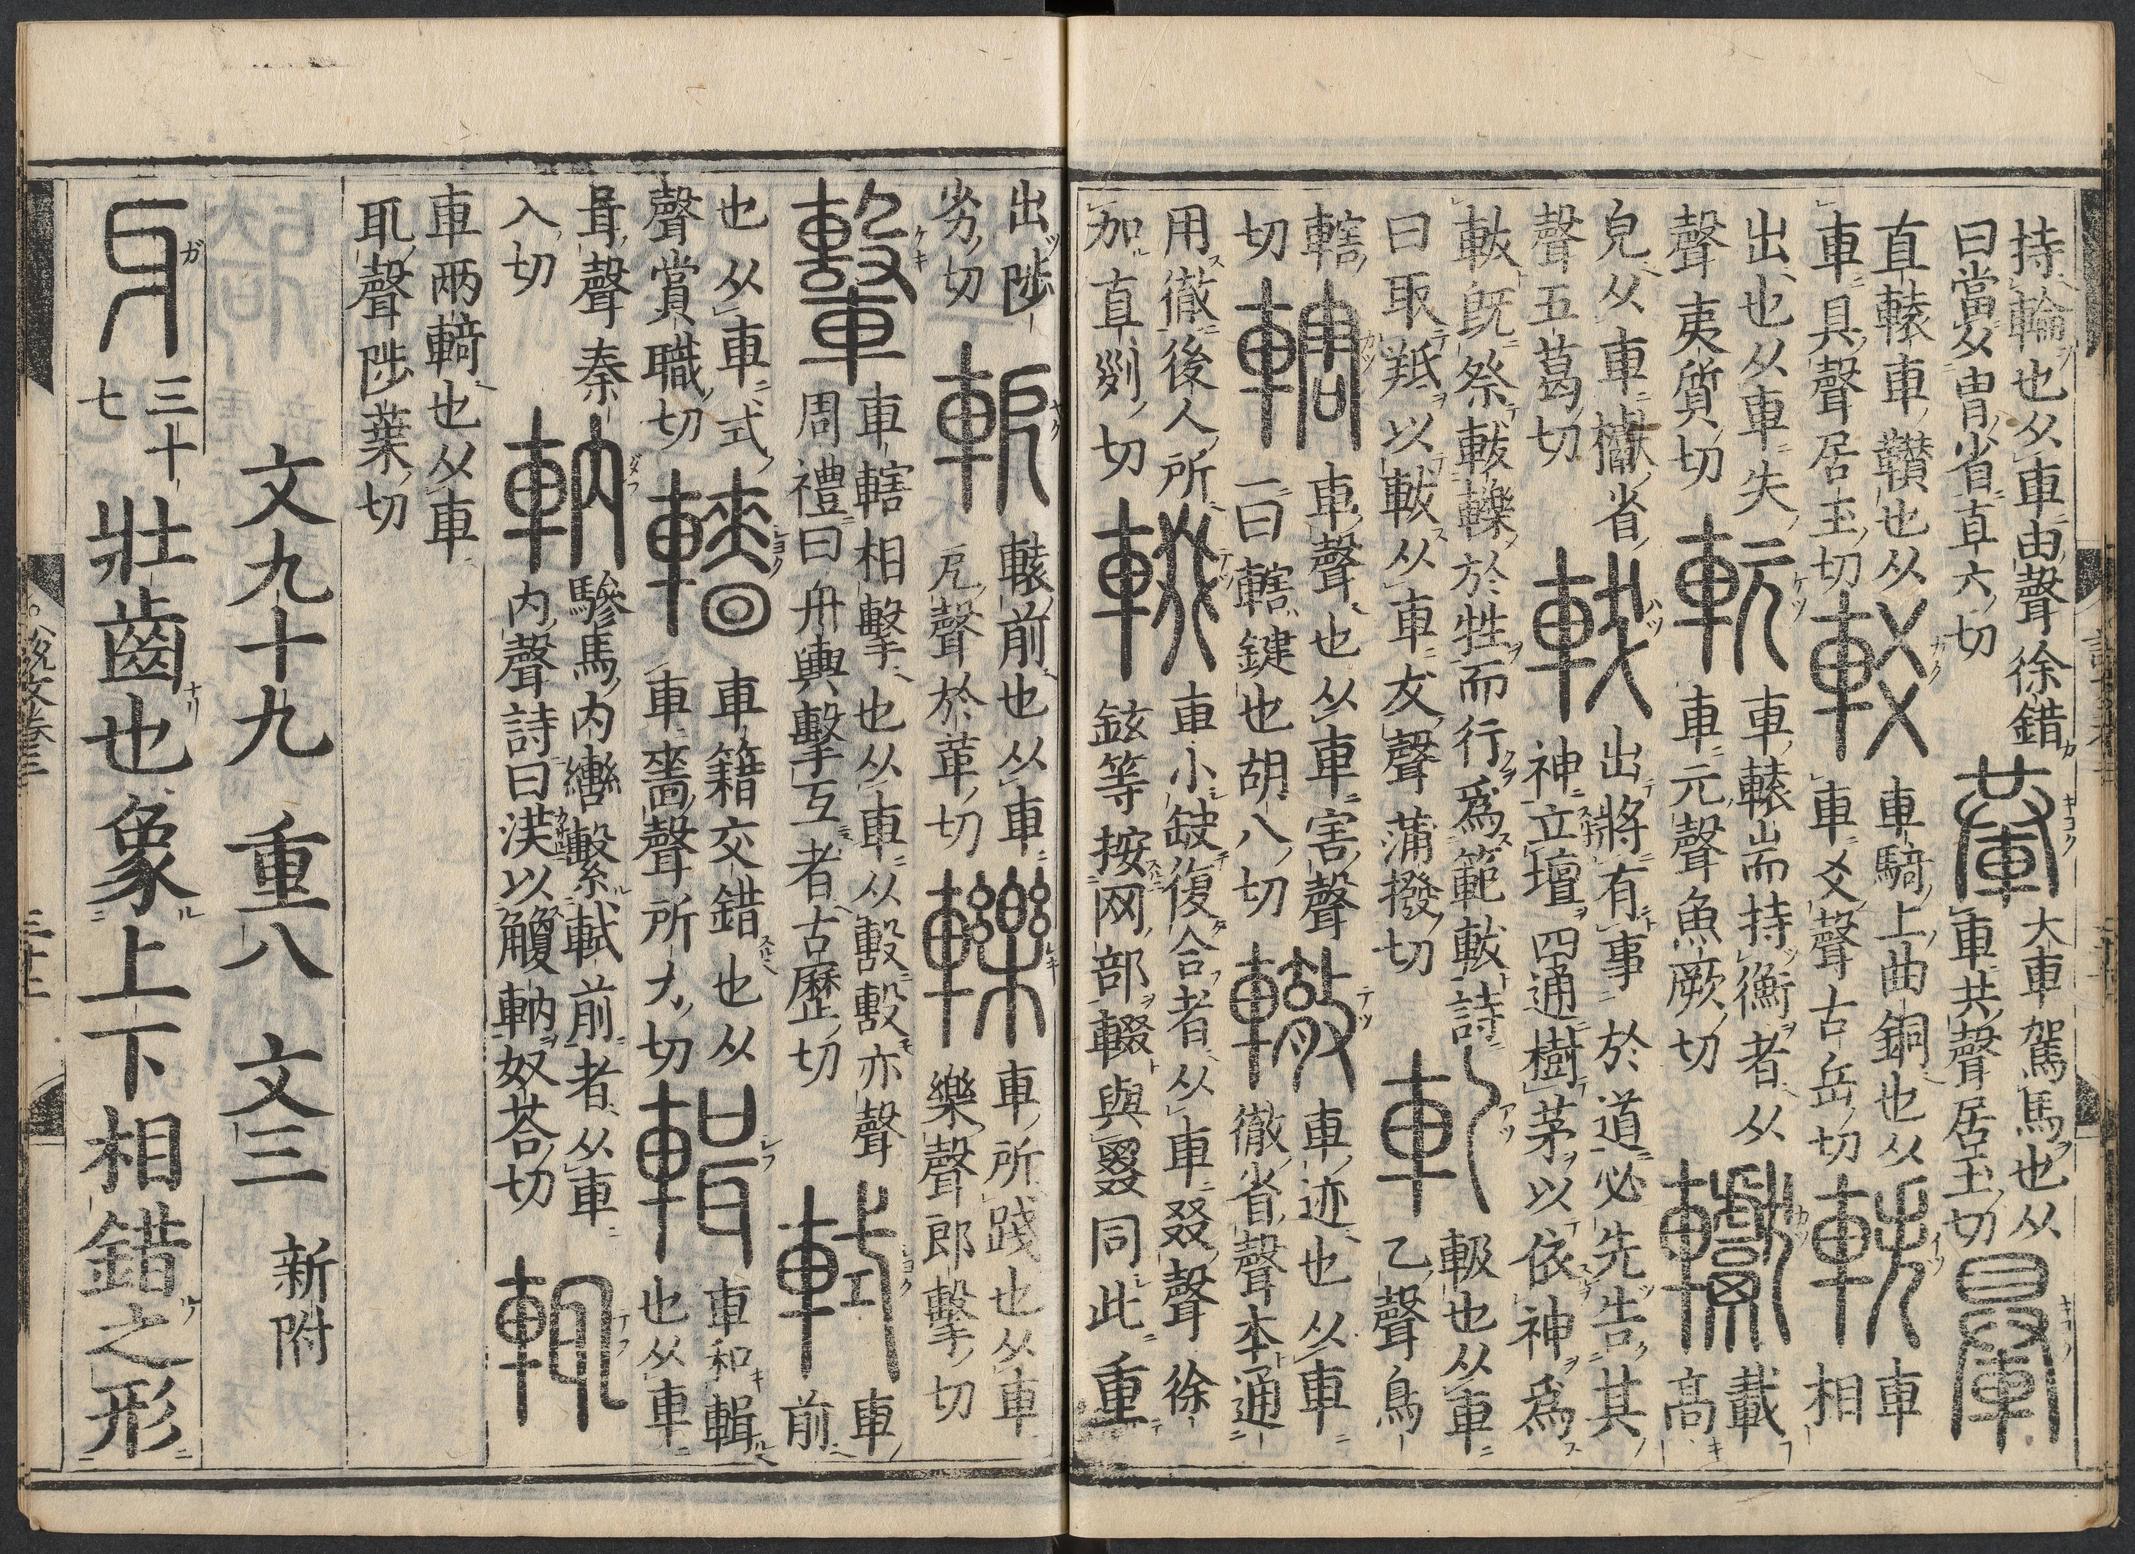 持輪也从車由聲徐鍇
曰當从冑省直六切
輂
大車駕馬也从
車共聲居玉切
𨏮
直轅車鑽也从
車具聲居玉切
較
車騎上曲銅也从
車爻聲古岳切
軼
車
相
出也从車失
聲夷質切
軏
車轅耑而持衡者从
車元聲魚厥切
載
高
皃从車㯍省
聲五葛切
軷
出將有事於道必先告其
神立壇四通樹茅以依神爲
軷既祭軷轢於牲而行爲範軷詩
曰取羝以軷从車犮聲蒲撥切
軋
報也从車
乙聲烏
轄
切
轄
車聲也从車害聲
一曰轄鍵也胡八切
轍
車迹也从車
徹省聲本通
用徹後人所
加直列切
輟
車小缺復合者从車叕聲徐
鉉等按网部輟與罬同此重
出陟
劣切
軶
轅前也从車
戹聲於革切
轢
車所踐也从車
樂聲郎擊切
轚
車轄相擊也从車从毄毄亦聲
周禮曰舟輿擊互者古歷切
軾
車
前
也从車式
聲賞職切
轖
車籍交錯也从
車嗇聲所力切
輯
車和輯
也从車
咠聲秦
入切
軜
驂馬內轡繫軾前者从車
內聲詩曰渼以觼軜奴荅切
輒
車兩輢也从車
耴聲陟葉切
文九十九 重八 文三 新附
牙 三十七 壯齒也象上下相錯之形